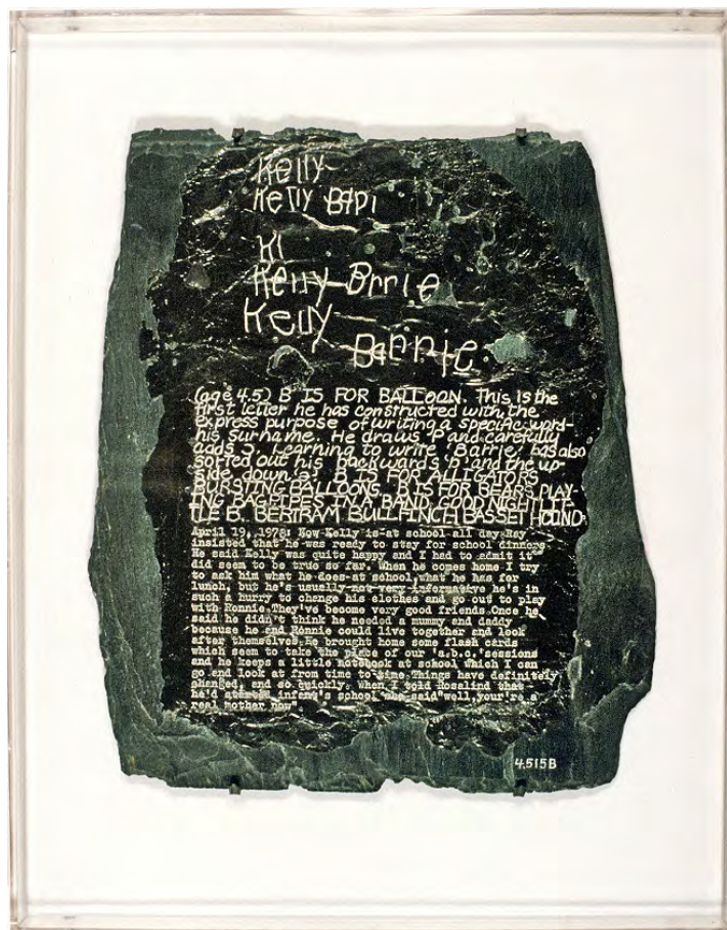 Kelly
Kelly BApi
Kl
Kelly Brrie
Kelly
Barrie
(age 4.5) B IS FOR BALLOON. This is the
first letter he has constructed with the
express purpose of writing a specific word-
his surname. He draws P and carefully
adds Learning to write 'Barrie' has also
sorted out his backwards and the up-
side down B IS FOR ALLIGATORS
BURSTING BALLOONS, B IS FOR BEARS PLAY-
ING BAGPIPES IN A BAND, GOOD NIGHT LIT-
TLE B. BERTRAM BULLFINCH BASSET HOUND.
April 19, 1978: Now Kelly is at school all day. Ray
insisted that he was ready to stay for school dinners.
He said Kelly was quite happy and I had to admit it
did seem to be true so far. When he comes home I try
to ask him what he does at school, what he has for
lunch, but he's usually not very informative he's in
such a hurry to change his clothes and go out to play
with Ronnie. They've become very good friends. Once he
said he didn't think he needed a mummy and daddy
because he and Ronnie could live together and look
after themselves. He brought home some flash cards
which seem to take the place of our 'a.b.c.' sessions
and he keeps a little notebook at school which I can
go and look at from time to time. Things have definitely
changed, and so quickly. When I told Rosalind that
he'd started infant's school she said "well, your're a
real mother now"
4.515B